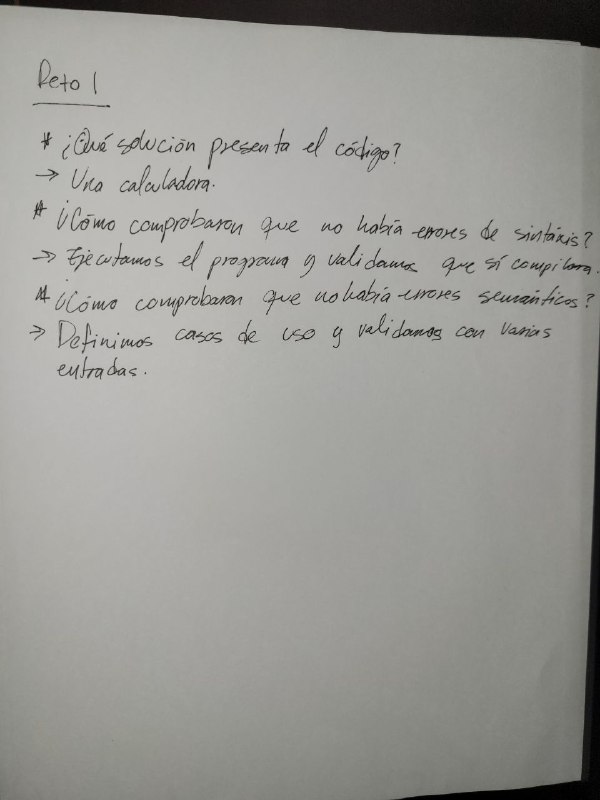 Reto 1
* ¿Qué solución presenta el código?
→ Una calculadora.
* ¿Cómo comprobaron que no había errores de sintáxis?
→ Ejecutamos el programa y validamos que sí compilara.
* ¿Cómo comprobaron que no había errores semánticos?
→ Definimos casos de uso y validamos con varias
entradas.